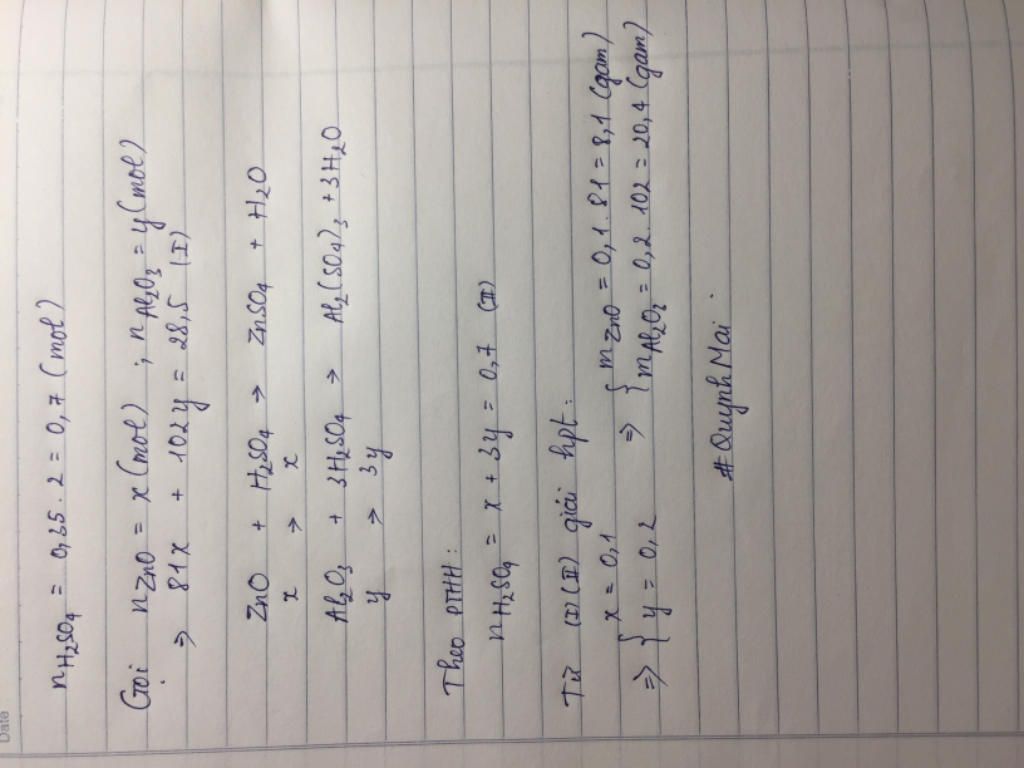 Date
nH₂SO₄ = 0,35 . 2 = 0,7 (mol)
Gọi nZnO = x (mol) ; nAl₂O₃ = y (mol)
⇒ 81x + 102y = 28,5 (I)
ZnO + H₂SO₄ → ZnSO₄ + H₂O
x → x
Al₂O₃ + 3H₂SO₄ → Al₂(SO₄)₃ + 3H₂O
y → 3y
Theo PTHH:
nH₂SO₄ = x + 3y = 0,7 (II)
Từ (I) (II) giải hpt:
⇒ { x = 0,1 ⇒ { mZnO = 0,1 . 81 = 8,1 (gam)
y = 0,2 mAl₂O₃ = 0,2 . 102 = 20,4 (gam)
#QuynhMai.